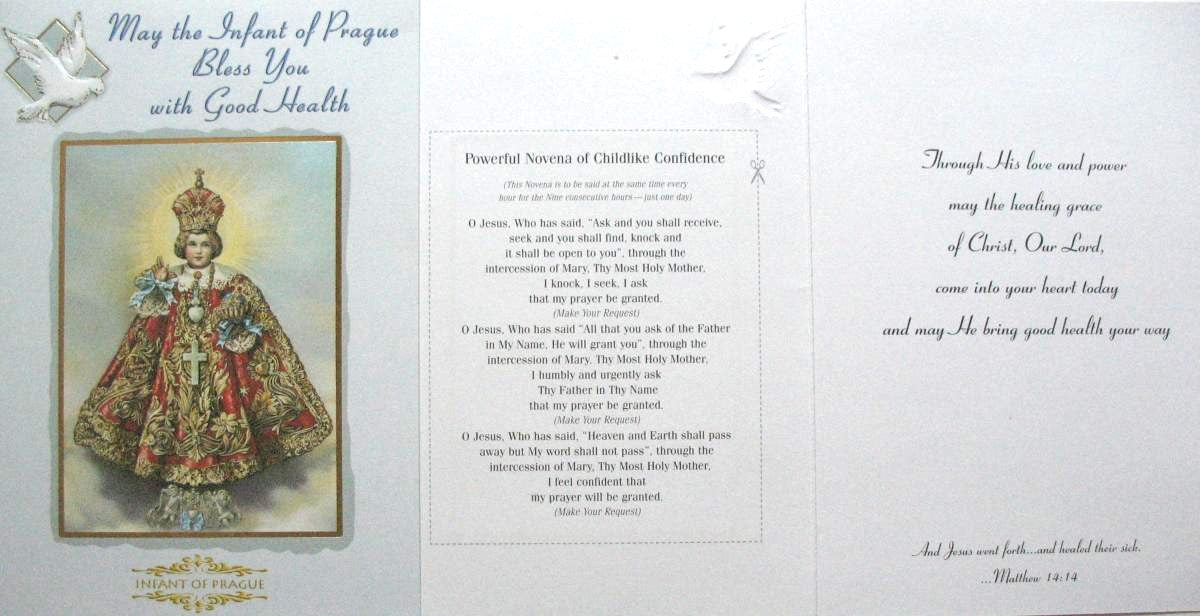 May the Infant of Prague
Bless You
with Good Health
INFANT OF PRAGUE
Powerful Novena of Childlike Confidence
(This Novena is to be said at the same time every
hour for the Nine consecutive hours — just one day)
O Jesus, Who has said, "Ask and you shall receive,
seek and you shall find, knock and
it shall be open to you", through the
intercession of Mary, Thy Most Holy Mother,
I knock, I seek, I ask
that my prayer be granted.
(Make Your Request)
O Jesus, Who has said "All that you ask of the Father
in My Name, He will grant you", through the
intercession of Mary, Thy Most Holy Mother,
I humbly and urgently ask
Thy Father in Thy Name
that my prayer be granted.
(Make Your Request)
O Jesus, Who has said, "Heaven and Earth shall pass
away but My word shall not pass", through the
intercession of Mary, Thy Most Holy Mother,
I feel confident that
my prayer will be granted.
(Make Your Request)
Through His love and power
may the healing grace
of Christ, Our Lord,
come into your heart today
and may He bring good health your way
And Jesus went forth...and healed their sick.
...Matthew 14:14